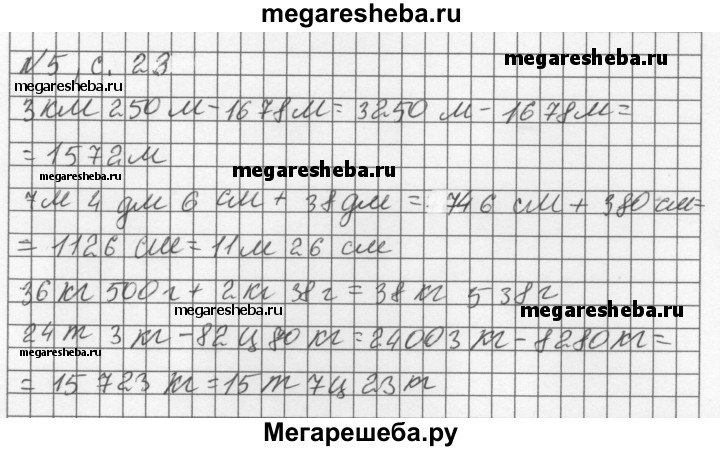 megaresheba.ru
№5 с. 23
megaresheba.ru
megaresheba.ru
3 км 250 м - 1678 м = 3250 м - 1678 м =
= 1572 м
megaresheba.ru
megaresheba.ru
7 м 4 дм 6 см + 38 дм = 746 см + 380 см =
= 1126 см = 11 м 26 см
36 кг 500 г + 2 кг 38 г = 38 кг 538 г
megaresheba.ru
megaresheba.ru
24 т 3 кг - 82 ц 80 кг = 24003 кг - 8280 кг =
megaresheba.ru
= 15 723 кг = 15 т 7 ц 23 кг
Мегарешеба.ру